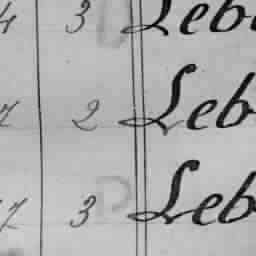 4 3 Leb
7 2 Leb
7 3 Leb